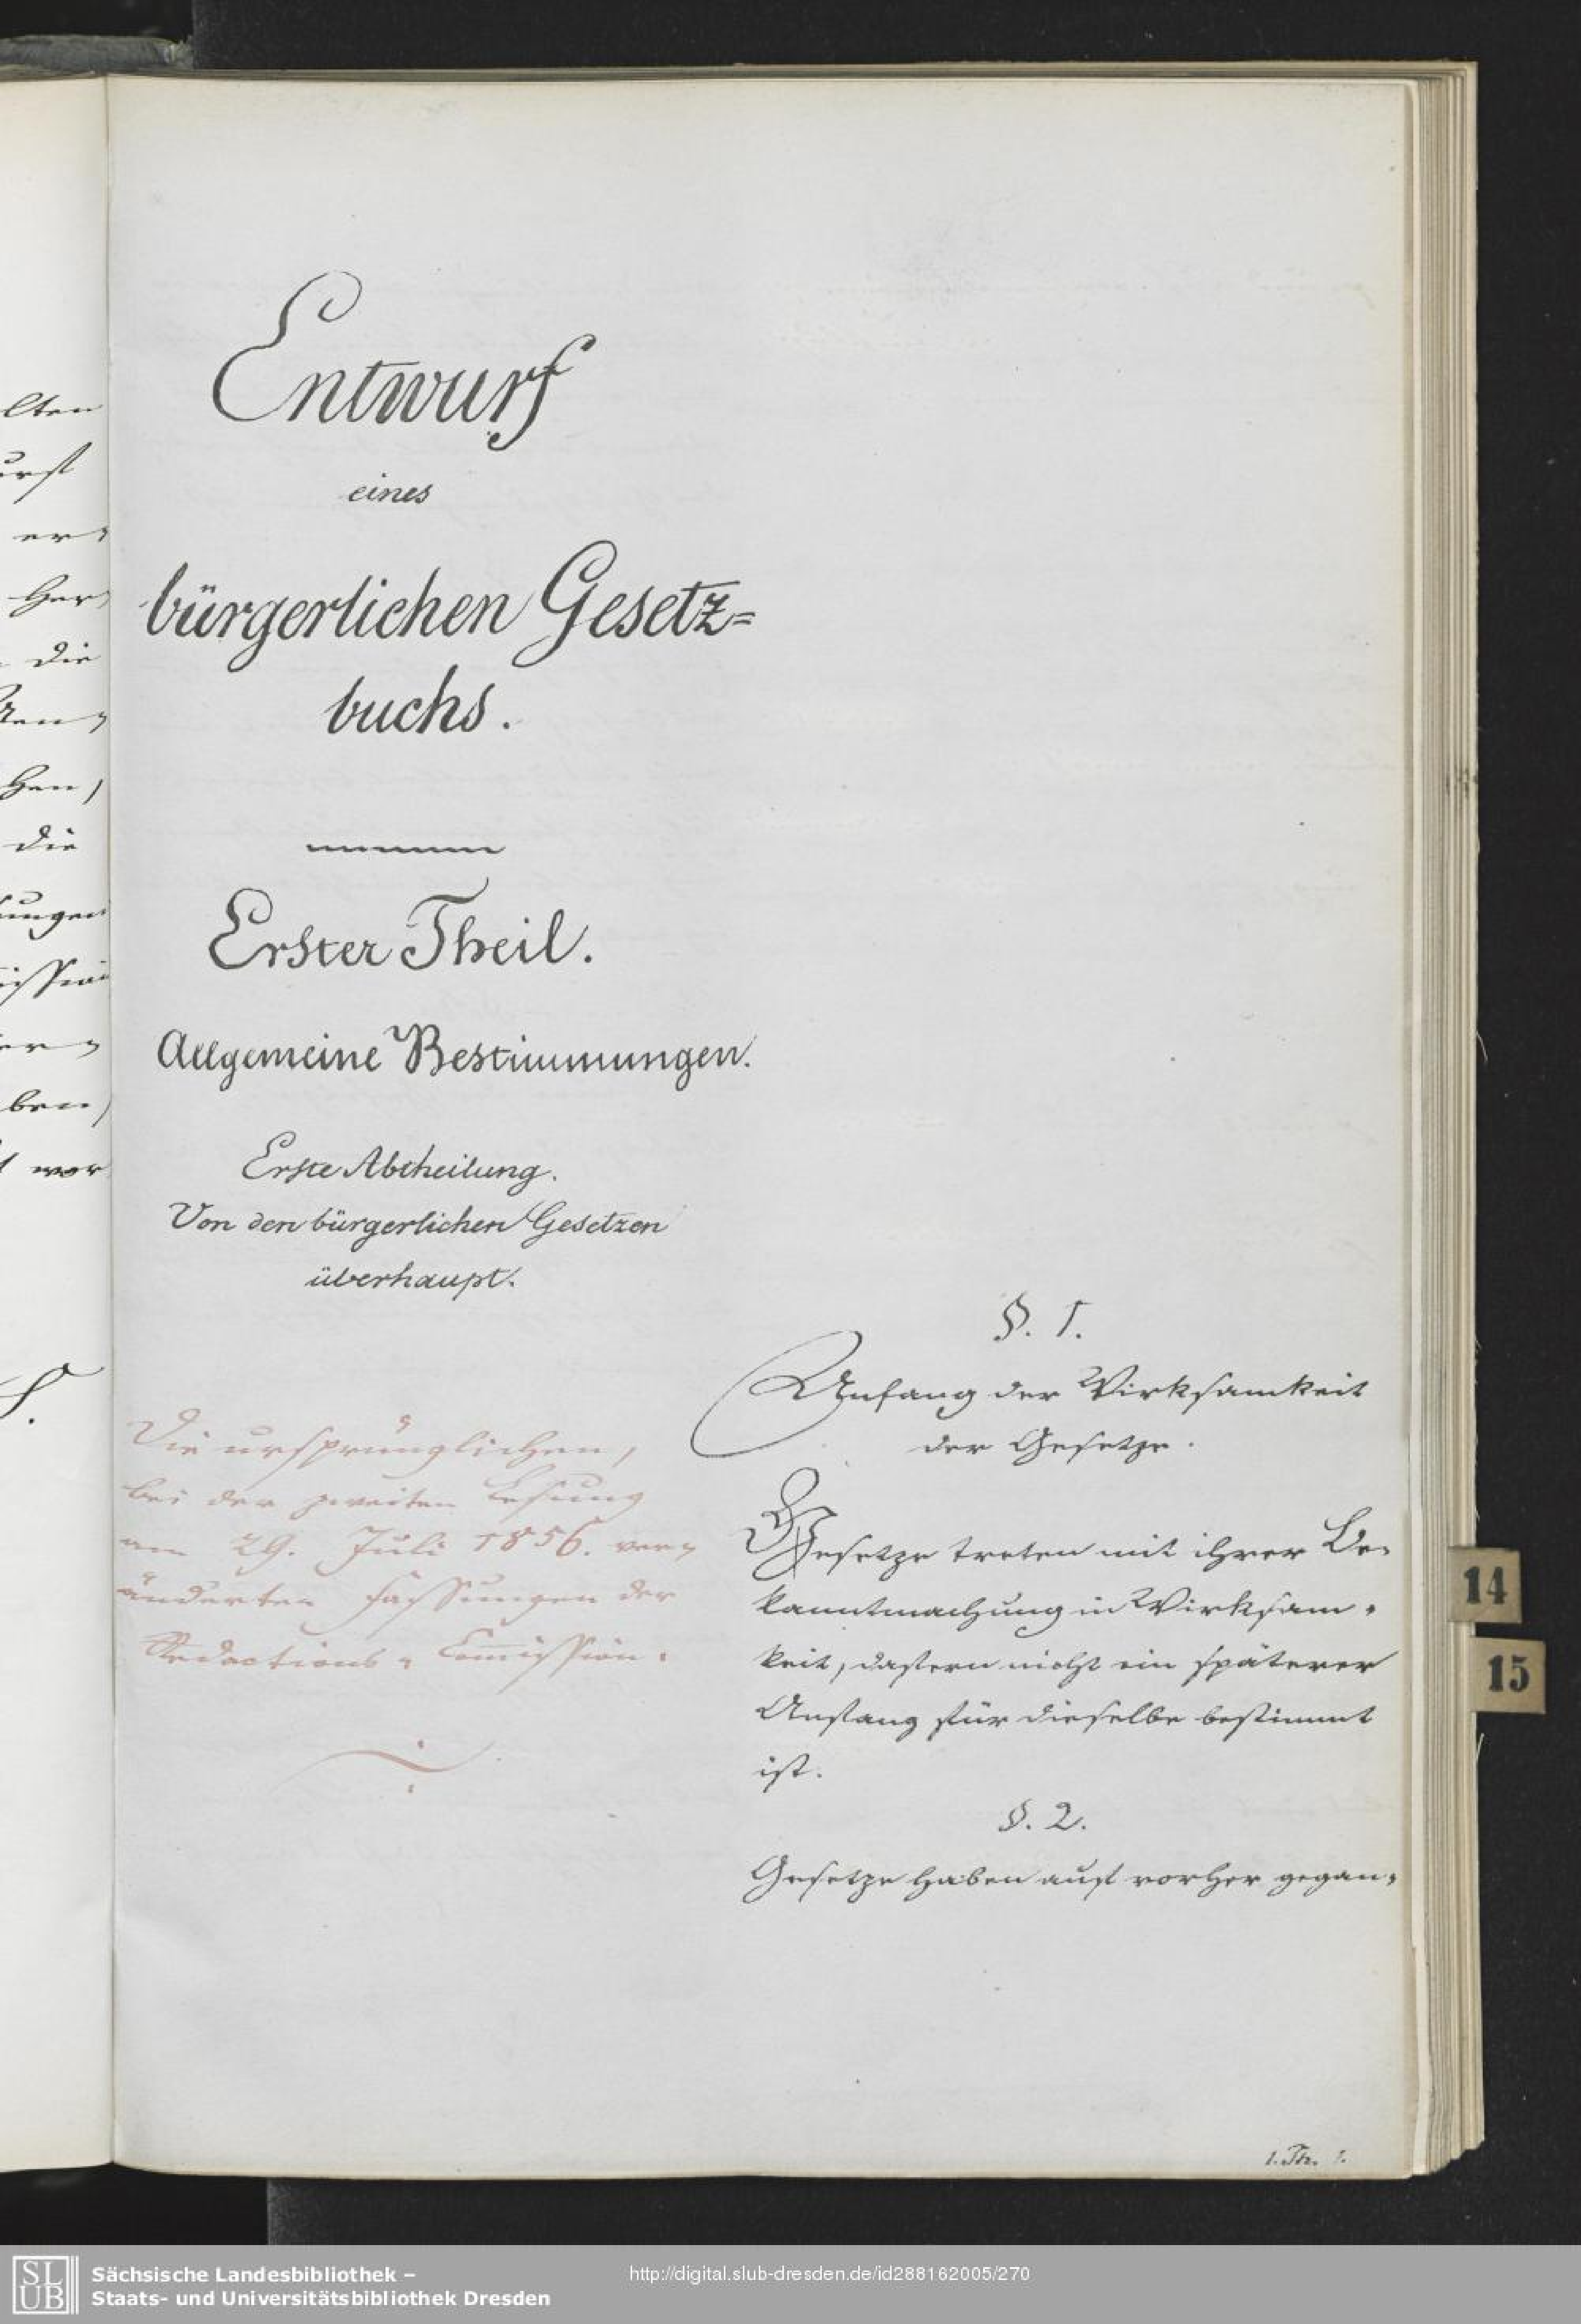 lten
erst
er-
her
die
hen,
die
ungen
ission
ben,
wor
Entwurf
eines
bürgerlichen Gesetz=
buchs.
Erster Theil.
Allgemeine Bestimmungen.
Erste Abtheilung.
Von den bürgerlichen Gesetzen
überhaupt.
Die ursprünglichen,
bei der zweiten Lesung
am 29. Juli 1856. ver-
änderten Fassungen der
Redactions-Commission.
§. 1.
Anfang der Wirksamkeit
der Gesetze.
Gesetze treten mit ihrer Be-
kanntmachung in Wirksam-
keit, dafern nicht ein späterer
Anfang für dieselbe bestimmt
ist.
§. 2.
Gesetze haben auf vorher gegan-
1. Th. 1.
14
15
SLUB
Sächsische Landesbibliothek –
Staats- und Universitätsbibliothek Dresden
http://digital.slub-dresden.de/id288162005/270